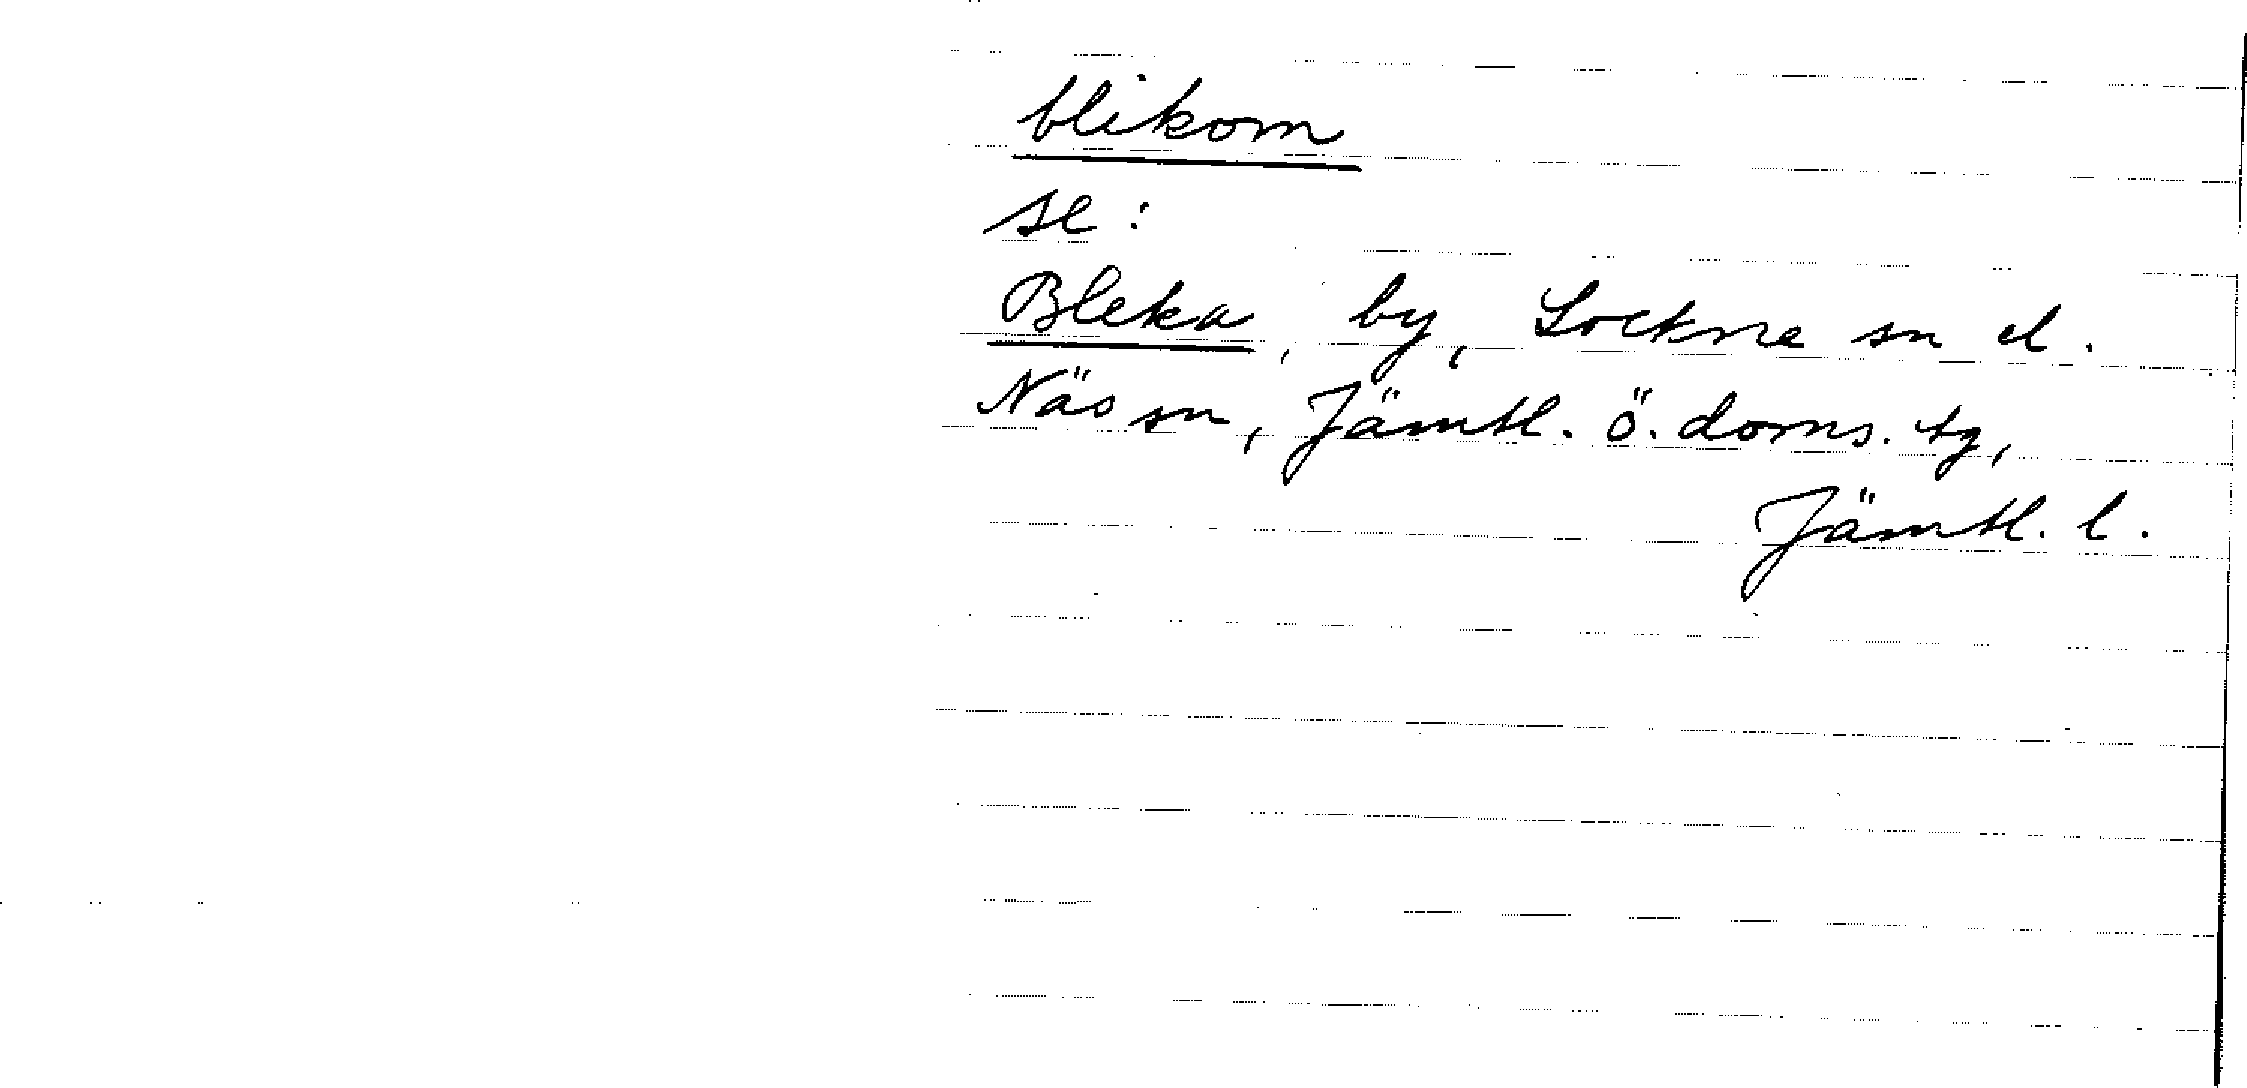 blikom
se:
Bleka, by, Lockne sn el.
Näs sn, Jämtl. ö. doms. tg,
Jämtl. l.